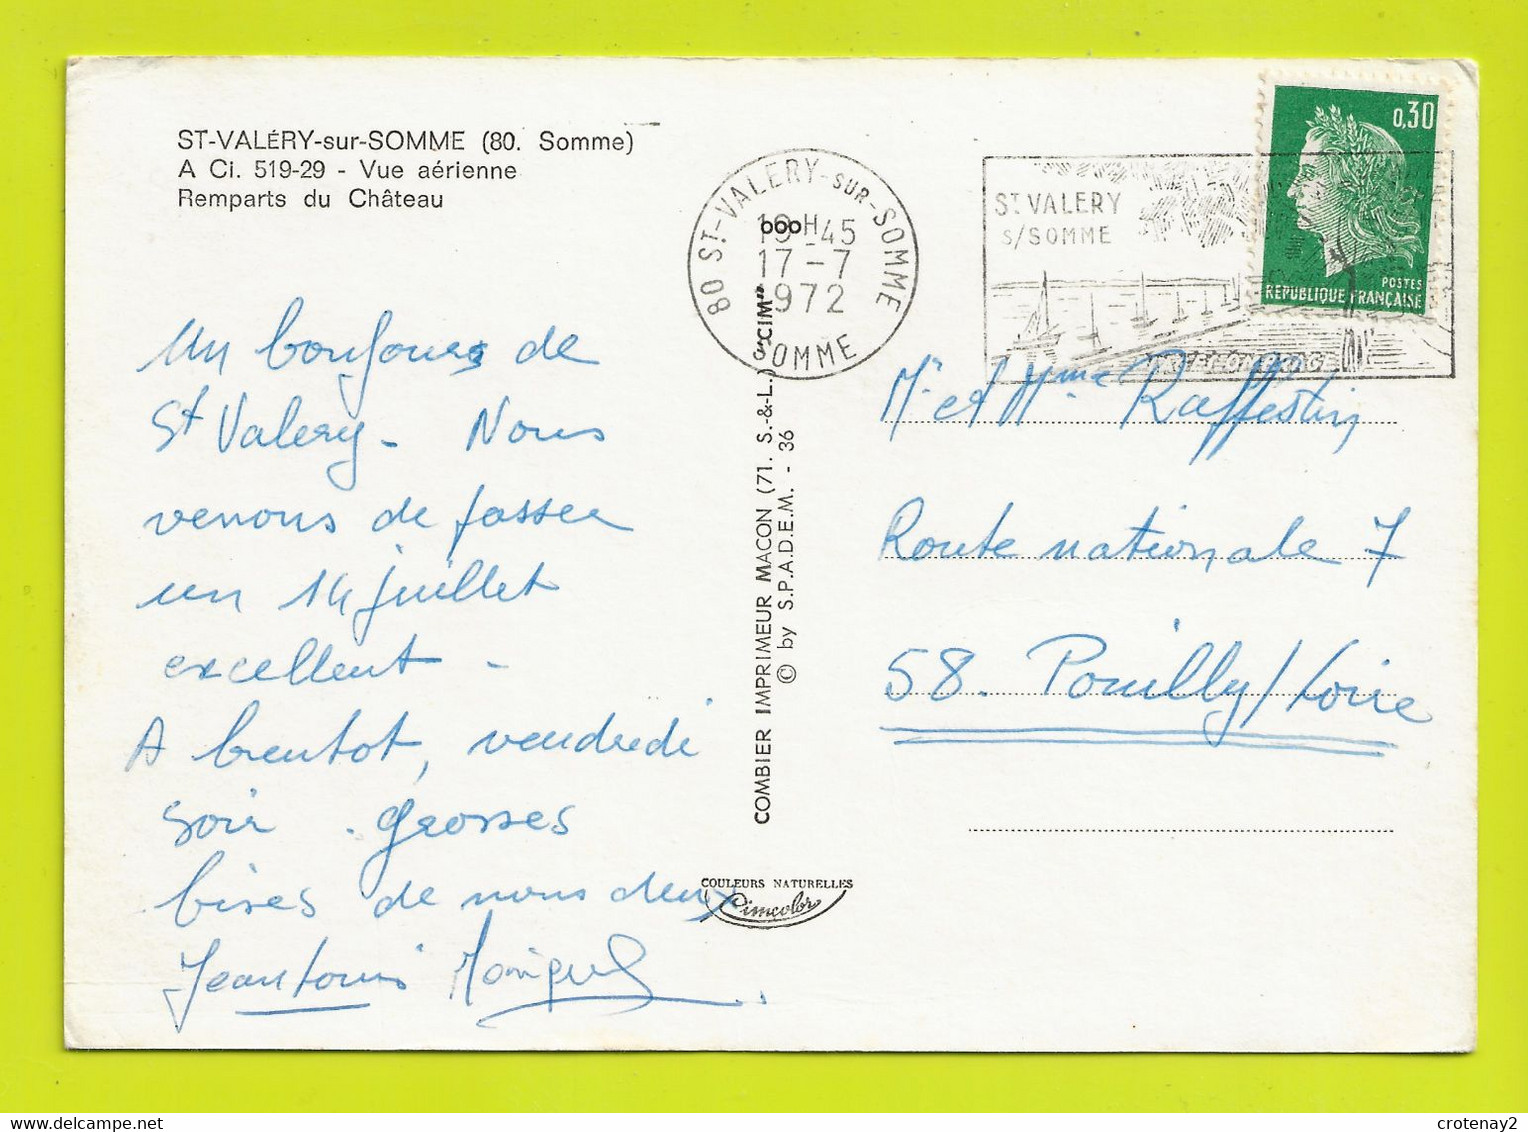 ST-VALÉRY-sur-SOMME (80. Somme)
A Ci. 519-29 - Vue aérienne
Remparts du Château
Un bonjour de
St Valery - Nous
venons de passer
un 14 juillet
excellent -
A bientot, vendredi
soir . Grosses
bises de nous deux
Jean Louis Monique
COMBIER IMPRIMEUR MACON (71. S.-&-L.) "CIM"
© by S.P.A.D.E.M. - 36
COULEURS NATURELLES
Cimcolor
80 ST-VALERY-SUR-SOMME
19H45
17-7
1972
SOMME
ST VALERY
S/SOMME
0,30
POSTES
REPUBLIQUE FRANÇAISE
Mr et Mme Raffestin
Route nationale 7
58. Pouilly/Loire
crotenay2